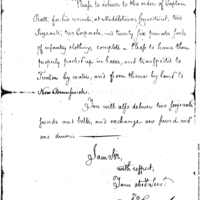 Please to deliver to the order of Captain
Bratt, for his recruits, at Middletown Connecticut, two
Sergeants, two Corporals, and twenty six privates suits
of infantry clothing complete - Please to have them
properly packed up in boxes, and transported to
Trenton by water, and from thence by land to
New Brunswick.
You will also deliver two Serjeants
swords and belts, and exchange one sword
one drum.
I am Sir,
with respect,
Your obedt Serv